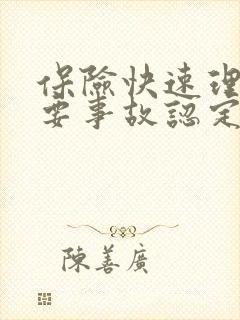 保險快速理
要事故認定
陳善廣